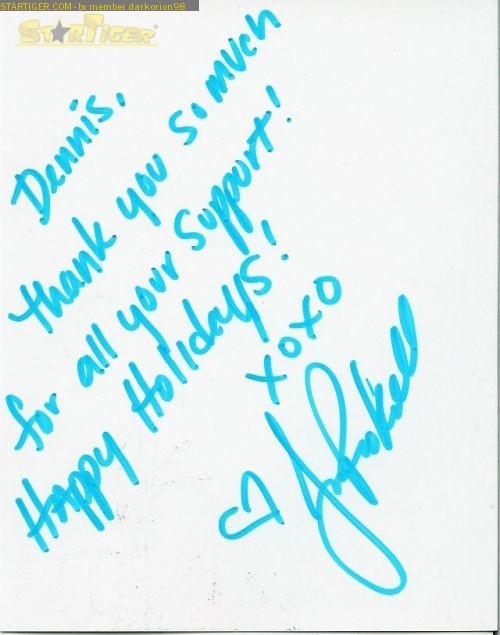 STARTIGER.COM - by member darkorion98
STARTIGER
Dennis,
thank you so much
for all your support!
Happy Holidays!
XOXO